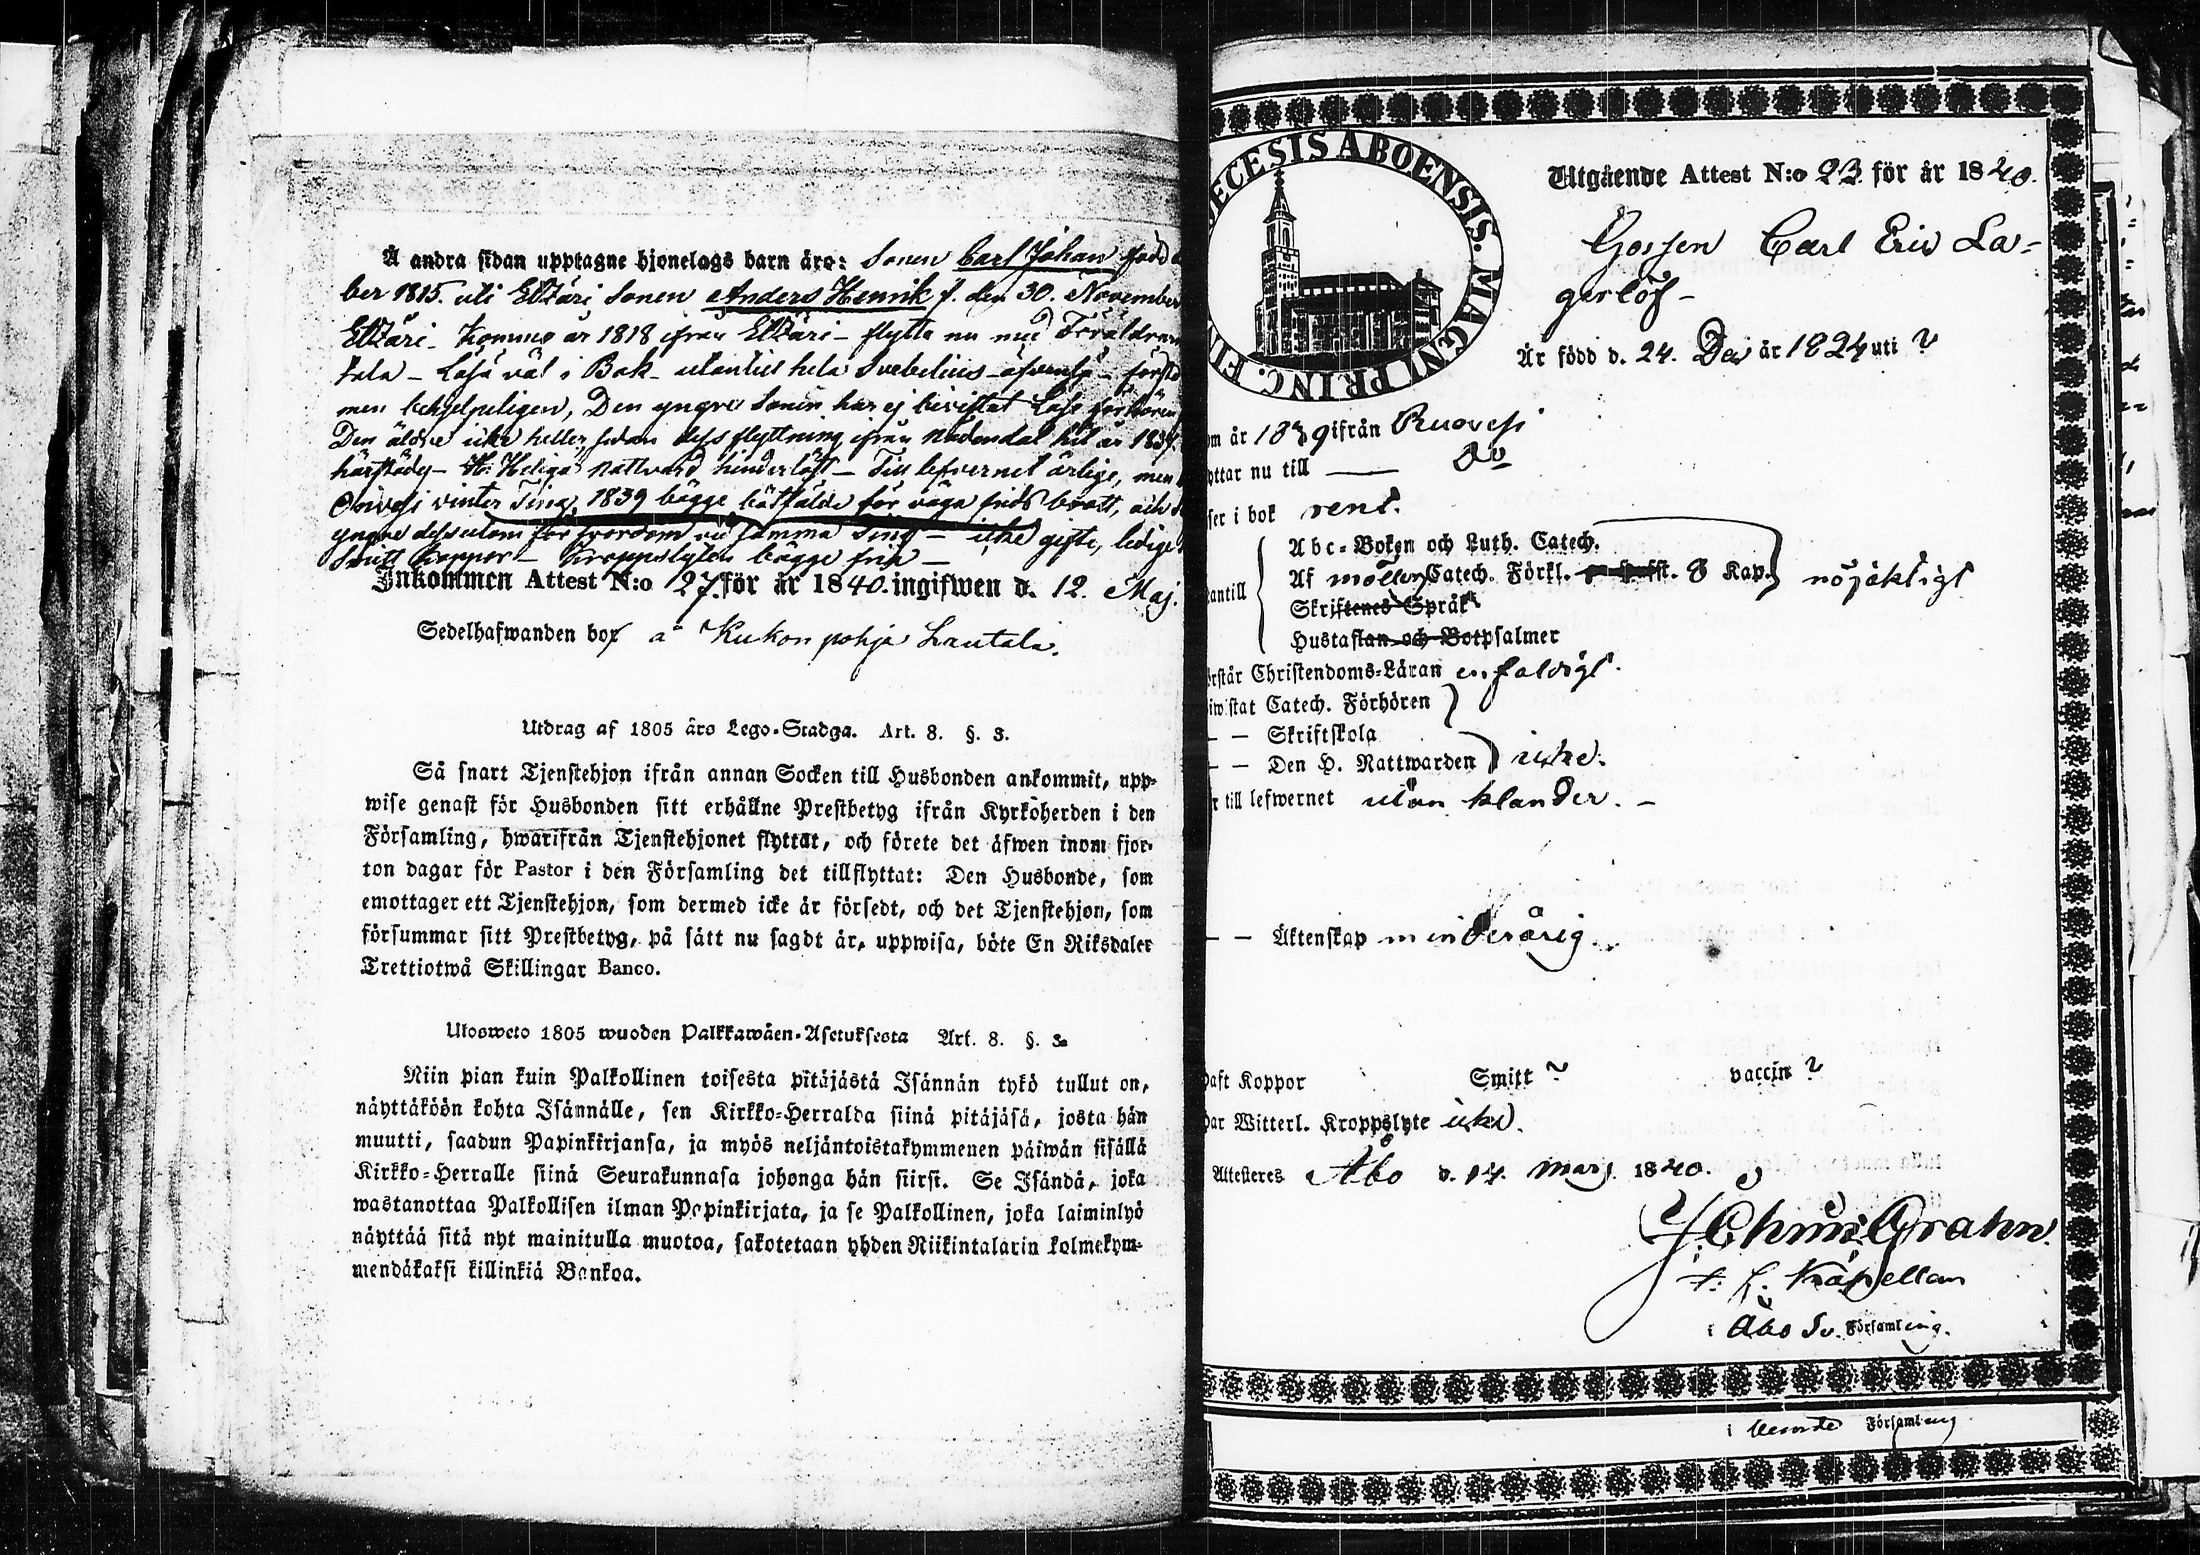 Å andra sidan upptagne hjonelags barn äro: Sonen Carl Johan född
ber 1815. uti Etzäri Sonen Anders Henrik f. den 30. November
Etzäri – Komne år 1818 ifrån Etzäri – flytta nu med Föräldrarne
tala – Läsa väl i Bok – utantill hela Svebelius – äfvenså – förstå
men behjelpeligen, Den yngre Sonen har ej bevistat Läse förhören
Den äldre icke heller sedan dess flyttning ifrån Nådendal hit år 1839.
härstädes – H: Heliga Nattvard hinderlöst – Till lefvernet ärlige, men
Orivesi vinter Ting 1839 bägge bötfälde för våga frids brott, och
yngre dessutom för svordom vid samma Ting – icke gifte, ledige
Smitt Koppor – Kroppslyten bägge fria –
Inkommen Attest N:o 27. för år 1840. ingifwen d. 12. Maj.
Sedelhafwanden bor å Kukonpohja Lautala.
Utdrag af 1805 års Lego-Stadga. Art. 8. §. 3.
Så snart Tjenstehjon ifrån annan Socken till Husbonden ankommit, upp-
wise genast för Husbonden sitt erhållne Prestbetyg ifrån Kyrkoherden i den
Församling, hwarifrån Tjenstehjonet flyttat, och förete det äfwen inom fjor-
ton dagar för Pastor i den Församling det tillflyttat: Den Husbonde, som
emottager ett Tjenstehjon, som dermed icke är försedt, och det Tjenstehjon, som
försummar sitt Prestbetyg, på sätt nu sagdt är, uppwisa, böte En Riksdaler
Trettiotwå Skillingar Banco.
Ulosweto 1805 wuoden Palkkawäen-Asetuksesta Art. 8. §. 3.
Niin pian kuin Palkollinen toisesta pitäjästä Isännän tykö tullut on,
näyttäköön kohta Isännälle, sen Kirkko-Herralda siinä pitäjäsä, josta hän
muutti, saadun Papinkirjansa, ja myös neljäntoistakymmenen päiwän sisällä
Kirkko-Herralle siinä Seurakunnasa johonga hän siirsi. Se Isändä, joka
wastanottaa Palkollisen ilman Papinkirjata, ja se Palkollinen, joka laiminlyö
näyttää sitä nyt mainitulla muotoa, sakotetaan yhden Riikintalarin kolmekym-
mendäkaksi killinkiä Bankoa.
ECESIS ABOENSIS. MAGNI PRINC. FIN
Utgående Attest N:o 23 för år 1840.
Gossen Carl Eric La-
gerlöf –
Är född d. 24. Dec år 1824 uti ?
m år 1839 ifrån Ruovesi
yttar nu till — Do
ser i bok rent.
Abc-Boken och Luth. Catech.
antill Af möllers Catech. Förkl. 8 Kap. nöjaktigt
Skriftenes Språk
Hustaflan och Botpsalmer
örstår Christendoms-Läran enfaldigt.
iwistat Catech. Förhören
— — Skriftskola
— — Den H. Nattwarden icke.
r till lefwernet utan klander. –
— — Äktenskap minderårig.
Haft Koppor Smitt ? vaccin ?
Har Witterl. Kroppslyte icke.
Attesteres Åbo d. 14. Marj. 1840.
Grahn.
Kapellan
i Åbo Sv. Församling.
i bemte Församling